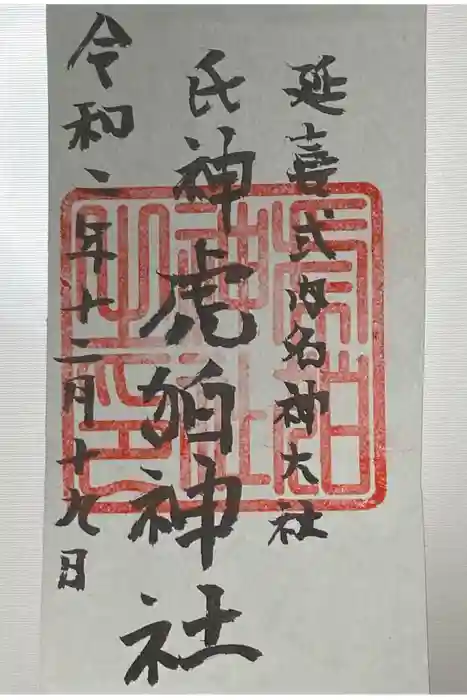 延喜式内名神大社
氏神虎狛神社
令和二年十二月十九日
虎狛神社之印